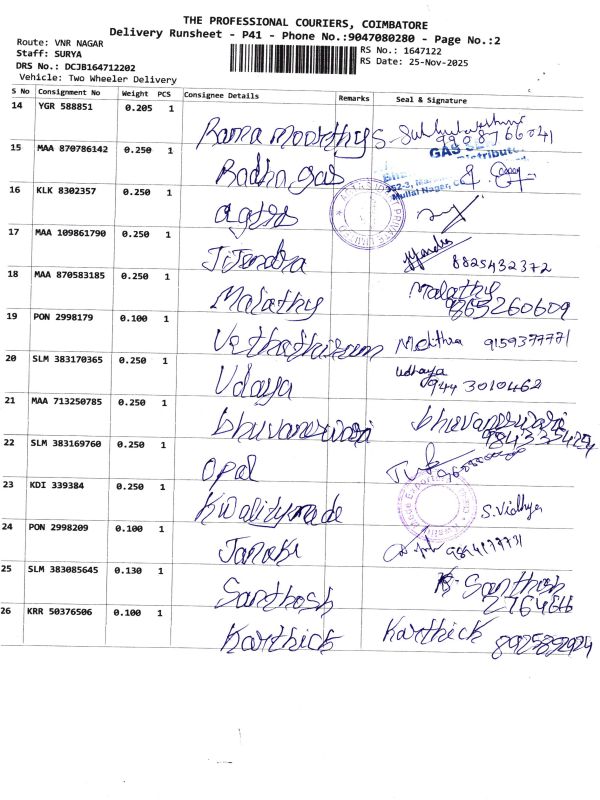 THE PROFESSIONAL COURIERS, COIMBATORE
Delivery Runsheet - P41 - Phone No.:9047080280 - Page No.:2
Route: VNR NAGAR
Staff: SURYA
RS No.: 1647122
DRS No.: DCJB164712202
RS Date: 25-Nov-2025
Vehicle: Two Wheeler Delivery
S No Consignment No Weight PCS Consignee Details Remarks Seal & Signature
14 YGR 588851 0.205 1 Rama moorthy 9908766041
15 MAA 870786142 0.250 1 Radha gas
GAS
Distribut
Mullai Nagar,
16 KLK 8302357 0.250 1 agtrs
17 MAA 109861790 0.250 1 JiJendra 8825432372
18 MAA 870583185 0.250 1 Malathy Malathy
8865260609
19 PON 2998179 0.100 1 Vethathiram 9159377771
20 SLM 383170365 0.250 1 Udaya Udhaya
9443010462
21 MAA 713250785 0.250 1 bhuvaneswari bhuvaneswari
22 SLM 383169760 0.250 1 Opal
23 KDI 339384 0.250 1 Kwalitymade S. Vidhya
24 PON 2998209 0.100 1 Janaki 9814177731
25 SLM 383085645 0.130 1 Santhosh Santhosh
26 KRR 50376506 0.100 1 Karthick Karthick 8925892924